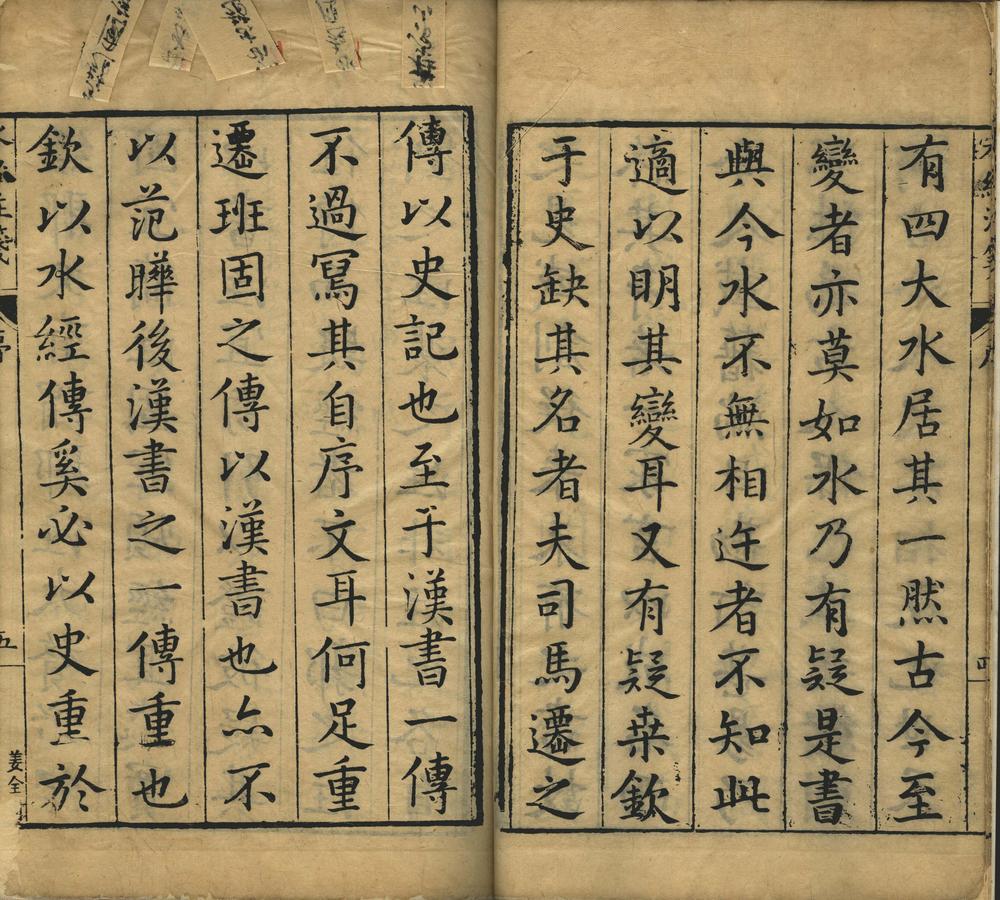 有四大水居其一然古今至
變者亦莫如水乃有疑是書
與今水不無相迕者不知此
適以明其變耳又有疑桒欽
于史缺其名者夫司馬遷之
傳以史記也至于漢書一傳
不過寫其自序文耳何足重
遷班固之傳以漢書也亦不
以范曄後漢書之一傳重也
欽以水經傳奚必以史重於
五
姜全